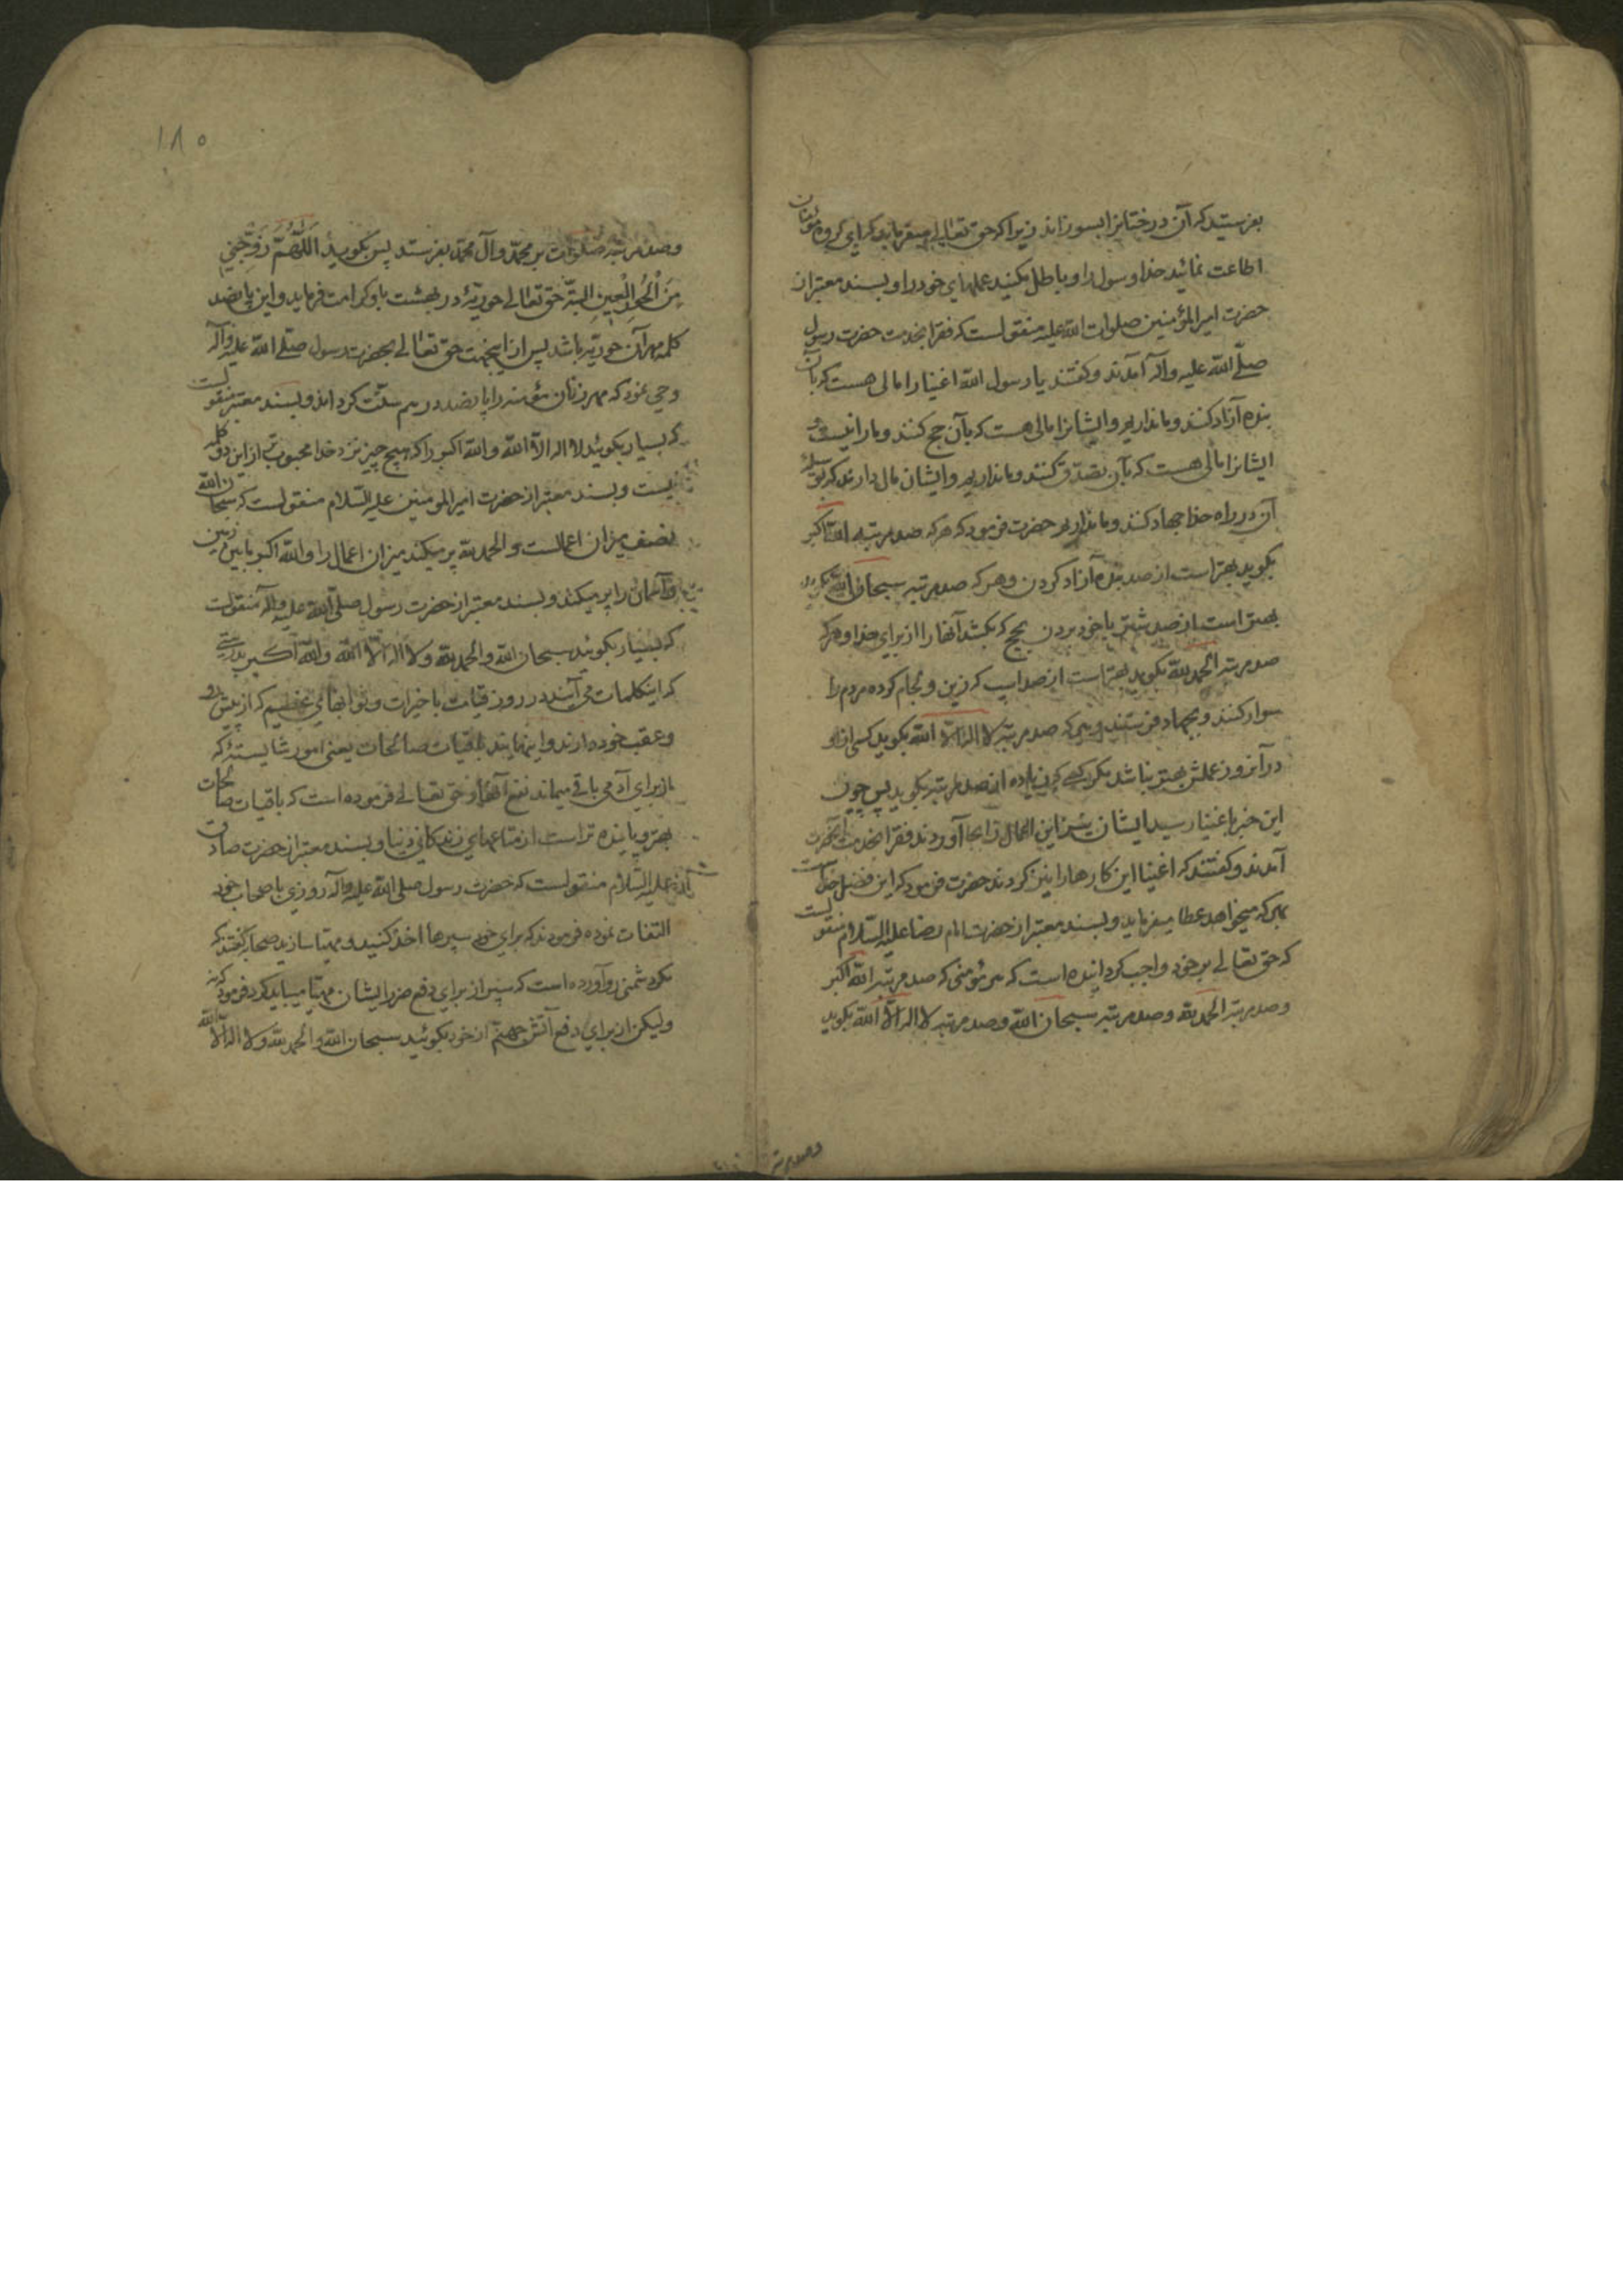 بفرستید که آن درختانرا بسوزاند زیرا که حق تعالی میفرماید که ای گروه مؤمنان
اطاعت نمائید خدا و رسول را و باطل مکنید عملهای خود را و بسند معتبر از
حضرت امیرالمؤمنین صلوات الله علیه منقولست که فقرا بخدمت حضرت رسول
صلّی الله علیه و آله آمدند و گفتند یا رسول الله اغنیا را مالی هست که بآن
بنده آزاد کنند و ما نداریم و ایشانرا مالی هست که بآن حج کنند و ما را نیست و
ایشانرا مالی هست که بآن تصدّق کنند و ما نداریم و ایشان مال دارند که بوسیله
آن در راه خدا جهاد کنند و ما نداریم حضرت فرمود که هر که صد مرتبه الله اکبر
بگوید بهتر است از صد بنده آزاد کردن و هر که صد مرتبه سبحان الله بگوید
بهتر است از صد شتر با خود بردن بحج که بکشد آنها را از برای خدا و هر که
صد مرتبه الحمد لله بگوید بهتر است از صد اسب که زین و لجام کرده مردم را
سوار کنند و بجهاد فرستند و هر که صد مرتبه لا اله الا الله بگوید کسی از او
در آنروز عملش بهتر نباشد مگر کسی که زیاده از صد مرتبه بگوید پس چون
این خبر باغنیا رسید ایشان نیز این اعمال را بجا آوردند فقرا بخدمت آنحضرت
آمدند و گفتند که اغنیا این کارها را نیز کردند حضرت فرمود که این فضل خداست
بهر که میخواهد عطا میفرماید و بسند معتبر از حضرت امام رضا علیه السّلام منقولست
که حق تعالی بر خود واجب گردانیده است که هر مؤمنی که صد مرتبه الله اکبر
و صد مرتبه الحمد لله و صد مرتبه سبحان الله و صد مرتبه لا اله الا الله بگوید
و صد مرتبه
۱۸۰
و صد مرتبه صلوات بر محمّد و آل محمّد بفرستد پس بگوید اَللّهُمَّ زَوِّجْنِی
مِنَ الْحُورِ الْعِینِ البتّه حق تعالی حوریّهٔ در بهشت باو کرامت فرماید و این پانصد
کلمه مهر آن حوریّه باشد پس از اینجهت حق تعالی بحضرت رسول صلّی الله علیه و آله
وحی نمود که مهر زنان مؤمنه را پانصد درهم سنّت گرداند و بسند معتبر منقولست
که بسیار بگوئید لا اله الا الله و الله اکبر را که هیچ چیز نزد خدا محبوب‌تر از این دو کلمه
نیست و بسند معتبر از حضرت امیرالمؤمنین علیه السّلام منقولست که سبحان الله
نصف میزان اعمالست و الحمد لله پر میکند میزان اعمال را و الله اکبر ما بین زمین
و آسمان را پر میکند و بسند معتبر از حضرت رسول صلّی الله علیه و آله منقولست
که بسیار بگوئید سبحان الله و الحمد لله و لا اله الا الله و الله اکبر بدرستی
که اینکلمات می‌آیند در روز قیامت با خیرات و ثوابهای عظیم که از پیش رو
و عقب خود دارند و اینهایند باقیات صالحات یعنی امور شایستهٔ که
از برای آدمی باقی میماند نفع آنها و حق تعالی فرموده است که باقیات صالحات
بهتر و پاینده تر است از متاعهای زندگانی دنیا و بسند معتبر از حضرت صادق
علیه السّلام منقولست که حضرت رسول صلی الله علیه و آله روزی باصحاب خود
التفات نموده فرمودند که برای خود سپرها اخذ کنید و مهیّا سازید صحابه گفتند که
مگر دشمنی رو آورده است که سپر از برای دفع ضرر ایشان مهیّا میباید کرد فرمود که نه
ولیکن از برای دفع آتش جهنّم از خود بگوئید سبحان الله و الحمد لله و لا اله الا الله